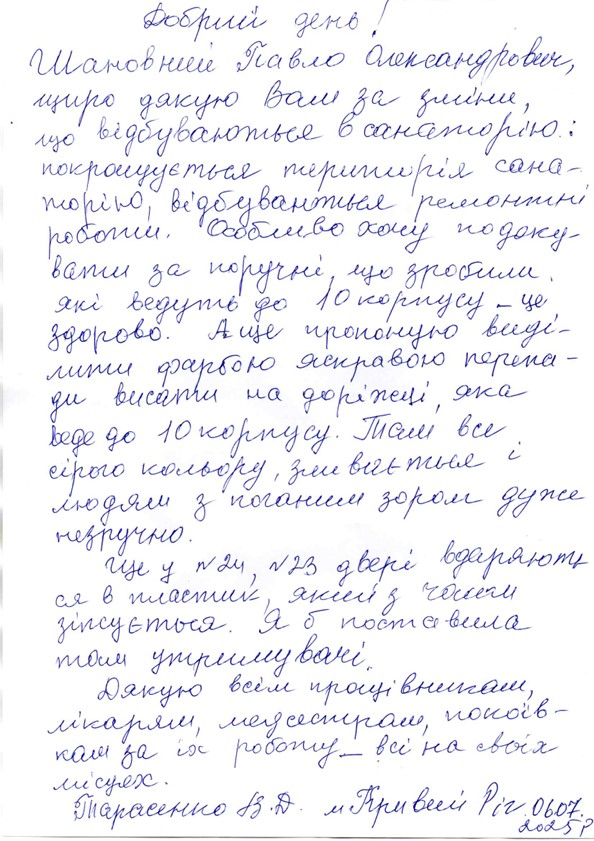 Добрий день!
Шановний Павло Олександрович,
щиро дякую Вам за зміни,
що відбуваються в санаторію:
покращується територія сана-
торію, відбуваються ремонтні
роботи. Особливо хочу подяку-
вати за поручні, що зробили,
які ведуть до 10 корпусу – це
здорово. А ще пропоную виді-
лити фарбою яскравою перепа-
ди висоти на доріжці, яка
веде до 10 корпусу. Там все
сірого кольору, зливається і
людям з поганим зором дуже
незручно.
Ще у №24, №23 двері вдаряють
ся в пластик, який з часом
зіпсується. Я б поставила
там утримувачі.
Дякую всім працівникам,
лікарям, медсестрам, покоїв-
кам за їх роботу – всі на своїх
місцях.
Тарасенко В.Д. м Кривий Ріг. 06.07.
2025 р